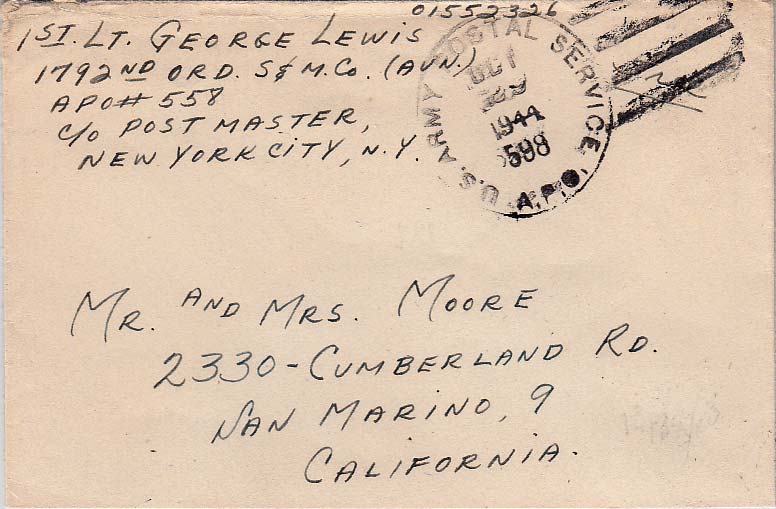 01552326
1ST. LT. GEORGE LEWIS
1792ND ORD. S & M. CO. (AVN.)
APO# 558
C/O POST MASTER,
NEW YORK CITY, N.Y.
U.S. ARMY POSTAL SERVICE
1944
598
A.P.O
MR. AND MRS. MOORE
2330-CUMBERLAND RD.
SAN MARINO, 9
CALIFORNIA.